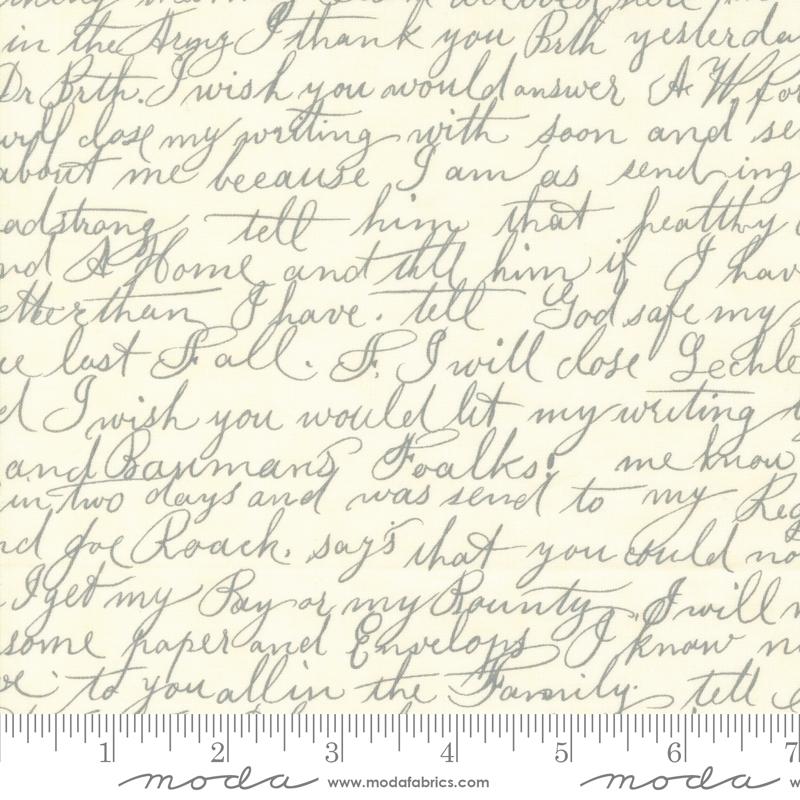 in the Army I thank you Brth yesterda
Dr Brth. I wish you would answer A W for
will close my writing with soon and se
about me because I am as sending
adstrong tell him that healthy
nd A Home and tell him if I hav
etter than I have. tell God safe my
ue last Fall. F. I will close Lechle
d I wish you would let my writing
and Baumans Foalks! me know
in two days and was send to my Reg
nd Joe Roach. say's that you could no
I get my Pay or my Bounty. I will
some paper and Envelops I know n
to you all in the Family. tell
1 2 3 4 5 6 7
moda www.modafabrics.com moda w